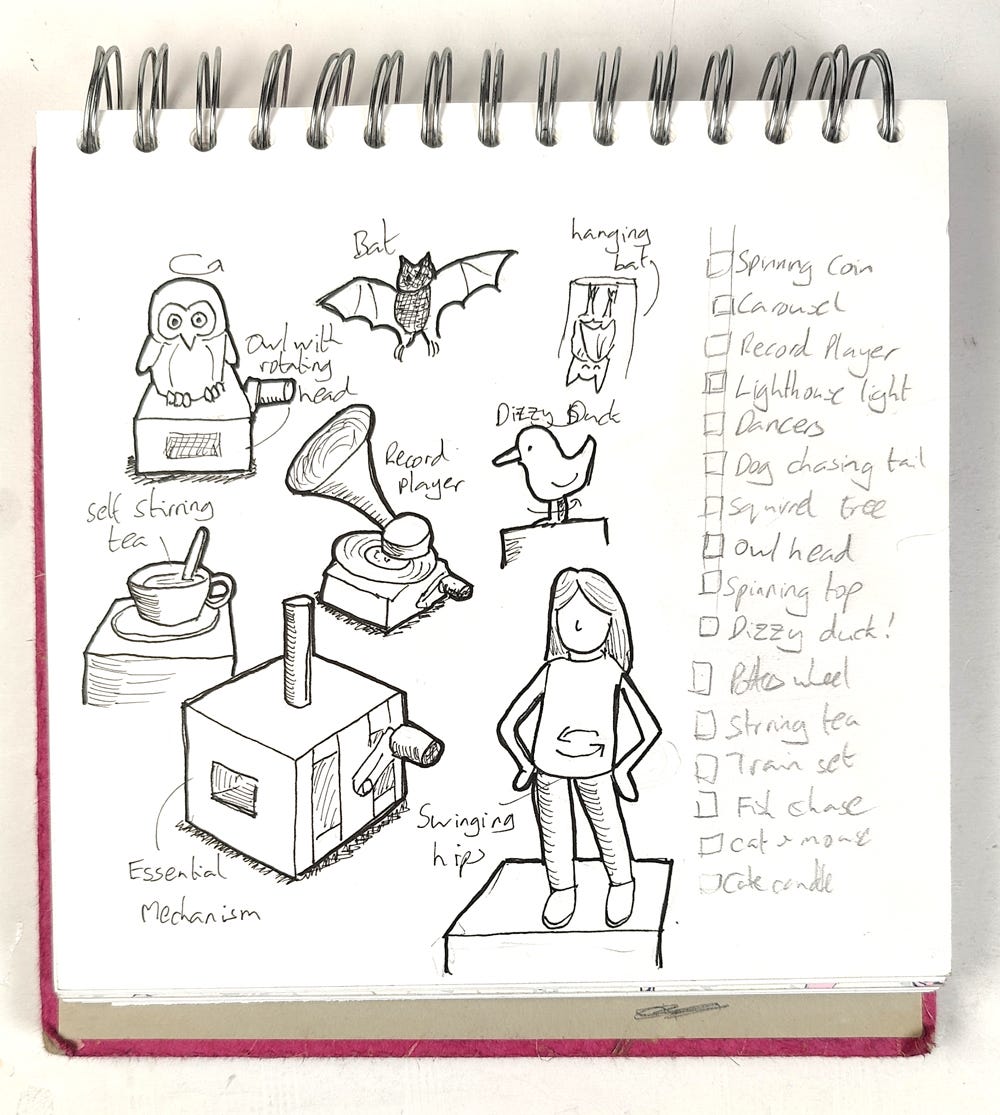 Ca
Bat
hanging
bat
Owl with
rotating
head
Record
player
Dizzy Duck
self stirring
tea
Essential
Mechanism
Swinging
hips
Spinning Coin
Carousel
Record Player
Lighthouse light
Dancers
Dog chasing tail
Squirrel tree
Owl head
Spinning top
Dizzy duck!
Potters wheel
Stirring tea
Train set
Fish chase
Cat + mouse
Cake candle